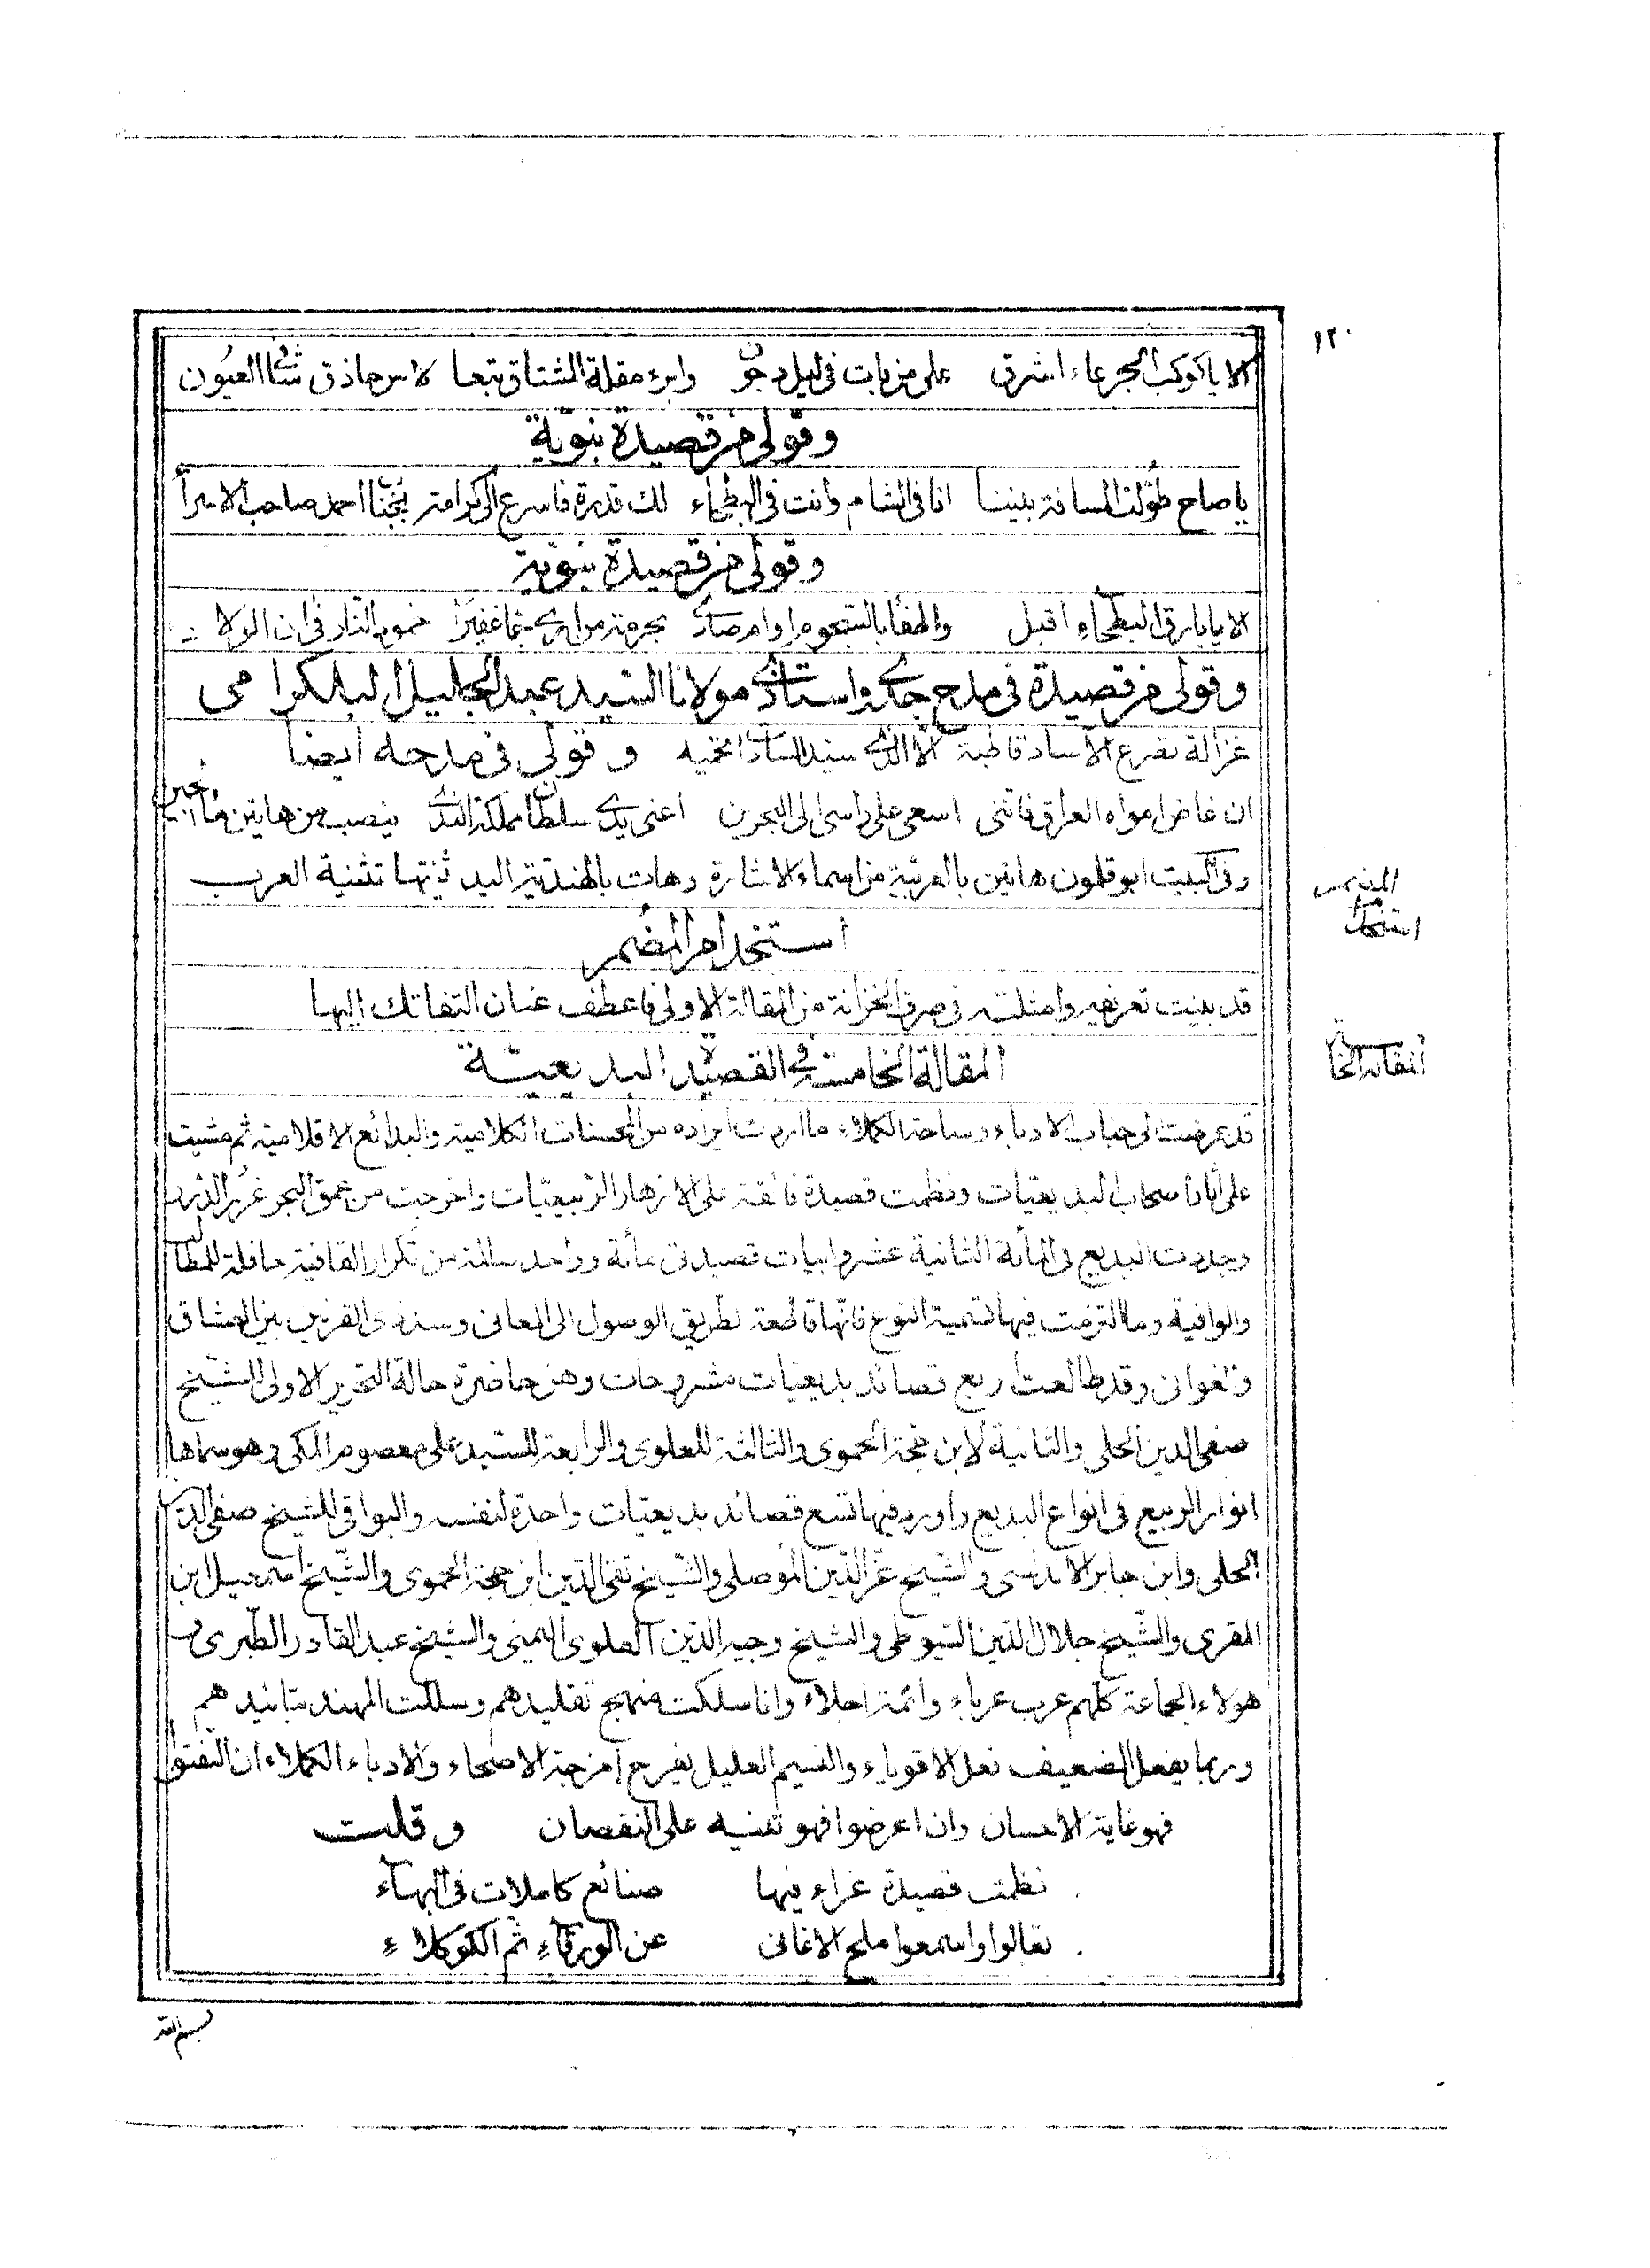 ١٢٠
الا يا كوكب الجرعاء اشرق على من بات في ليل دجون وابرء مقلة المشتاق تبعا
وقولى من قصيدة نبوية
يا صاح طولت المسافة بيننا انا فى الشام وانت فى البطحاء لك قدرة فاسرع الى احمد صاحب الاسرا
وقولى من قصيدة نبوية
الا يا بارق البطحاء اقبل
وقولى من قصيدة فى مدح جدى واستاذى مولانا السيد عبد الجليل البلكرامى
غزالة تصرع الاساد قاطبة الا الذى سيد السادات يحميه وقولى فى مدحه ايضا
ان غاض امواه العراق فاننى اسعى على راسى الى البحرين اعنى يدى سلطان مملكة الندى ينصب من هاتين
وفى البيت ابو قلمون هاتين بالعربية من اسماء الاشارة وهات بالهندية اليد ثنيتها تثنية العرب
المضمر
استخدام
استخدام المضمر
قد بينت تعريفه وامثلته فى صرف الخزانة من المقالة الاولى فاعطف عنان التفاتك اليها
المقالة الخا
المقالة الخامسة فى القصيدة البديعية
قد عرضت الى جناب الادباء وساحة الكملاء ما اردت ايراده من المحسنات الكلامية والبدائع الاقلامية ثم مشيت
على اثار اصحاب البديعيات ونظمت قصيدة فائقة على الازهار الربيعيات واخرجت من عمق البحر غرر الدرر
وجددت البديع فى المأية الثانية عشر وابيات قصيدتى مأية وواحد سالمة من تكرار القافية حافلة للمطالب
والوافية وما التزمت فيها تسمية النوع فانها قاطعة لطريق الوصول الى المعانى وسد ذى القرنين بين العشاق
والغوانى وقد طالعت اربع قصائد بديعيات مشروحات وهن حاضرة حالة التحرير الاولى للشيخ
صفى الدين الحلى والثانية لابن حجة الحموى والثالثة للعلوى والرابعة للسيد على معصوم المكى وهو سماها
انوار الربيع فى انواع البديع واورد فيها تسع قصائد بديعيات واحدة لنفسه والبواقى للشيخ صفى الدين
الحلى وابن جابر الاندلسى والشيخ عز الدين الموصلى والشيخ تقى الدين ابن حجة الحموى والشيخ اسمعيل ابن
المقرى والشيخ جلال الدين السيوطى والشيخ وجيه الدين العلوى اليمنى والشيخ عبد القادر الطبرى و
هولاء الجماعة كلهم عرب عرباء وائمة اجلاء وانا سلكت منهج تقليدهم وسللت المهند بتائيدهم
وربما يفعل الضعيف فعل الاقوياء والنسيم العليل يفرح امزجة الاصحاء والادباء الكملاء ان التفتوا
فهو غاية الاحسان وان اعرضوا فهو تنبيه على النقصان وقلت
نظمت قصيدة غراء فيها صنائع كاملات فى البهاء
تعالوا واسمعوا ملح الاغانى عن الورقاء ثم الكوكلاء
بسم الله